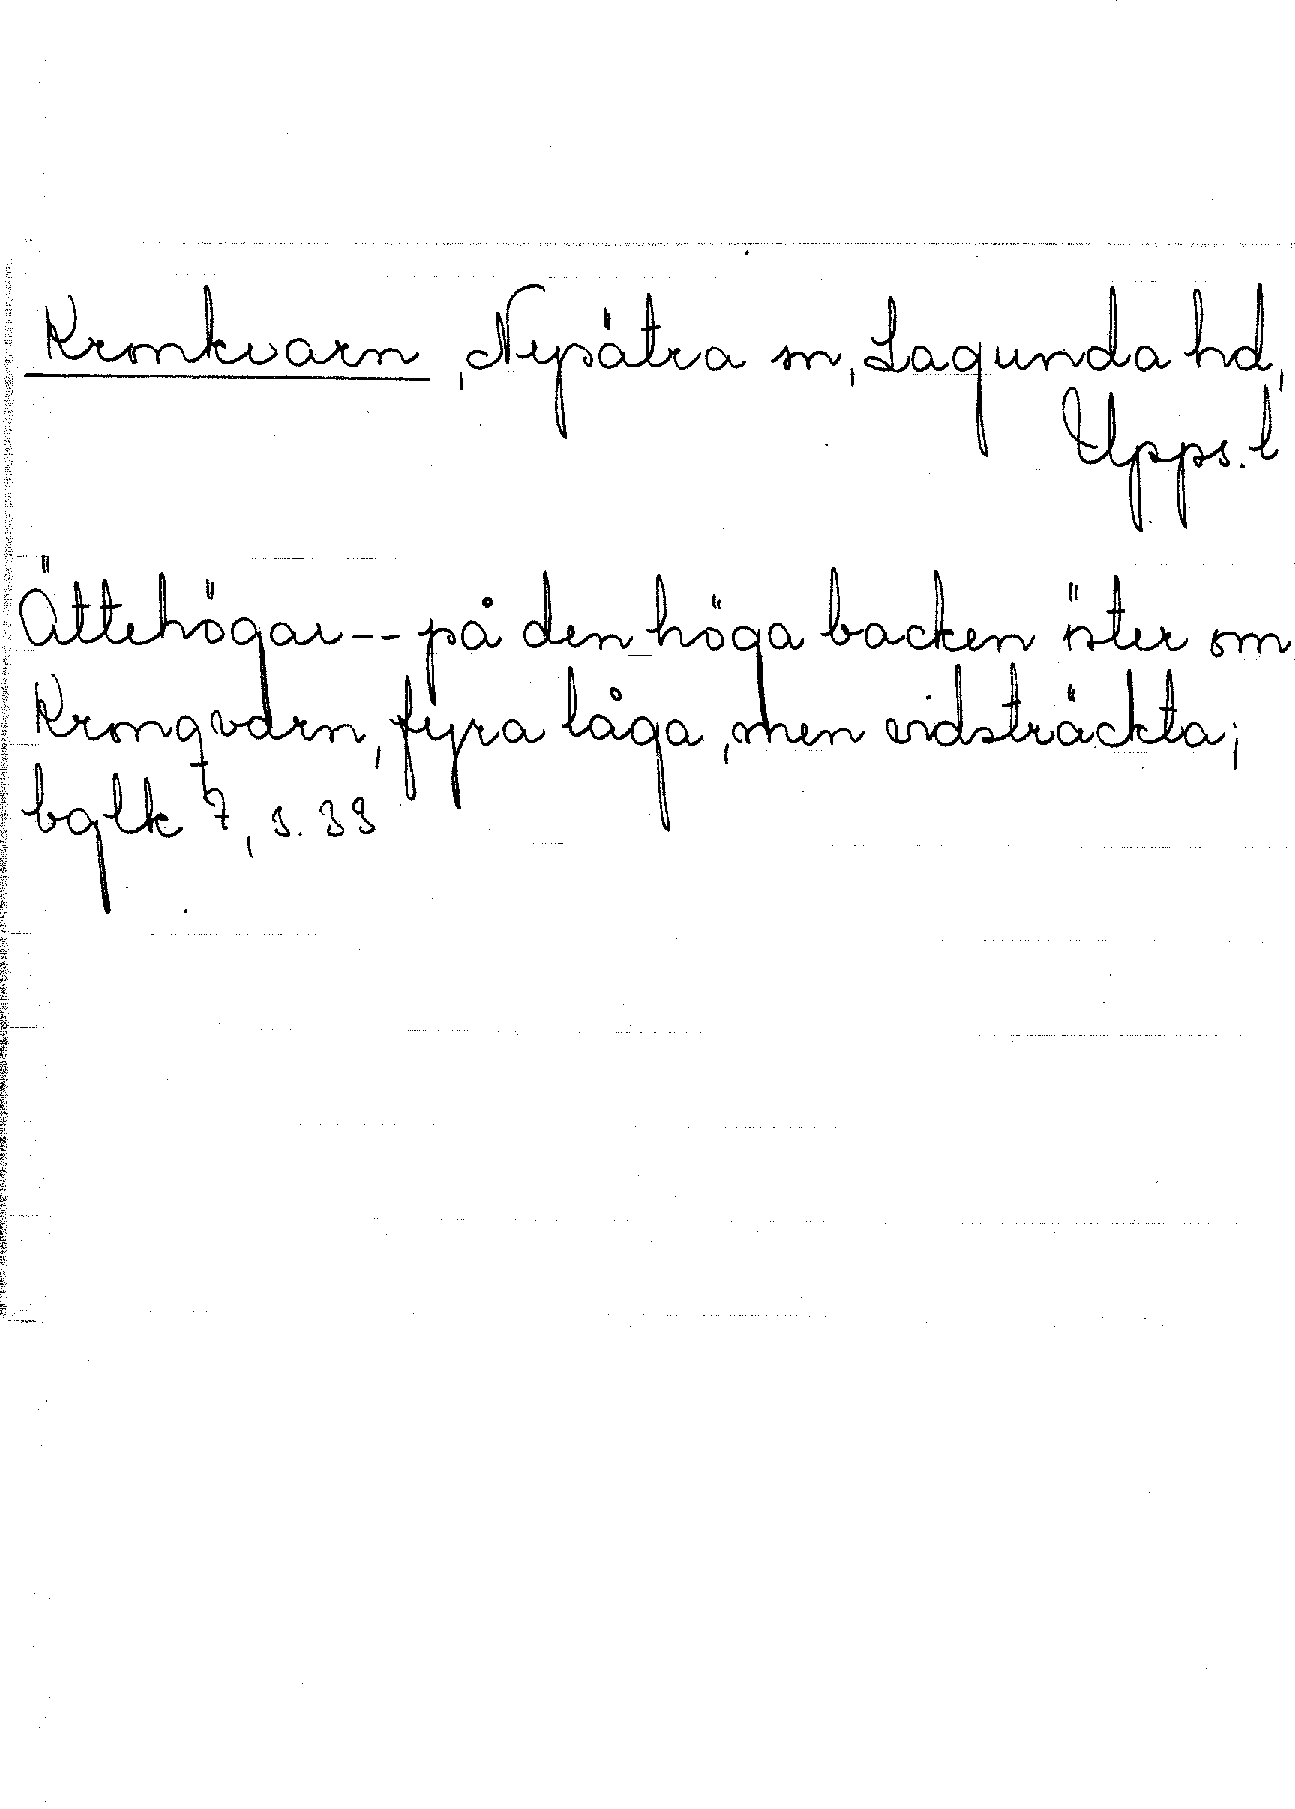 Kronkvarn, Nysätra sn, Lagunda hd,
Upps. l
Ättehögar -- på den höga backen öster om
Kronqvarn, fyra låga, men vidsträckta;
bglk 7, s. 39